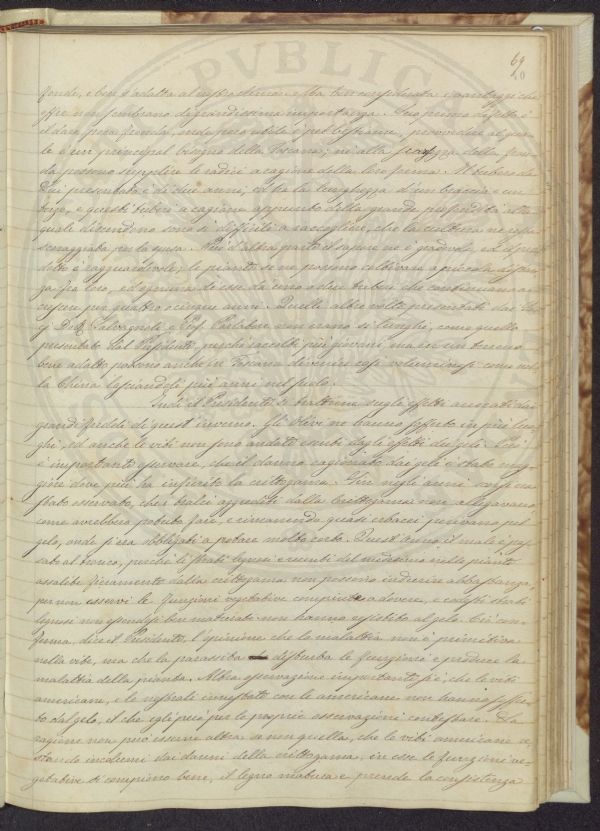 64
40
fondo, e ben s'adatta al nostro clima. Ma ben considerata i vantaggi che
offre non sembrano di grandissima importanza. Suo primo difetto è
il dare poca fronda, onde poco utile è pel bestiame, provvedere al qua-
le è un principal bisogno della Toscana; nè alla scarsezza della fron-
da possono supplire le radici a cagione della loro forma. Il tubero da
Lui presentato è di due anni, ed ha la lunghezza d'un braccio e un
terzo, e questi tuberi a cagione appunto della grande profondità alla
quale discendono sono sì difficili a raccogliere, che la cultura ne resta
scoraggiata per la spesa. Per l'altra parte il sapore ne è gradevole, ed il pro-
dotto è ragguardevole, le piante se ne possono coltivare a piccola distan-
za fra loro, ed ognuna di esse dà uno o due tuberi che continuano a
crescere per quattro o cinque anni. Quelli altre volte presentati dai Si-
gi Dott. Salvagnoli e Prof. Parlatore non erano sì lunghi, come quello
presentato dal Presidente, perchè raccolti più giovani, ma in un terreno
bene adatto possono anche in Toscana divenire così voluminosi come nel-
la China lasciandoli più anni nel suolo.
Indi il Presidente si trattiene sugli effetti arrecati dai
grandi freddi di quest'inverno. Gli Olivi ne hanno sofferto in più luo-
ghi, ed anche le viti non sono andate esenti dagli effetti dei geli. Qui
è importante osservare, che il danno cagionato dai geli è stato mag-
giore dove più ha infierito la crittogama. Già negli anni scorsi era
stato osservato, che i tralci aggrediti dalla crittogama non allegavano
come avrebbero potuto fare, e rimanendo quasi erbacei perivano pel
gelo, onde si era obbligati a potare molto corto. Quest'anno il male è pas-
sato al tronco, perchè le parti legnose recenti del medesimo nelle piante
assalite fieramente dalla crittogama non possono indurire abbastanza,
per non esservi le funzioni vegetative compiute a dovere, e codesti strati
legnosi non essendosi ben maturati non hanno resistito al gelo. Ciò con-
ferma, dice il Presidente, l'opinione che la malattia non è primitiva
nella vite, ma che la parassita disturba le funzioni e produce la
malattia della pianta. Altra osservazione importante si è, che le viti
americane, e le nostrali innestate con le americane non hanno soffer-
to dal gelo, il che egli può per le proprie osservazioni contestare. La
cagione non può essere altra se non quella, che le viti americane re-
stando incolumi dai danni della crittogama, in esse le funzioni ve-
getative si compiono bene, il legno matura e prende la consistenza